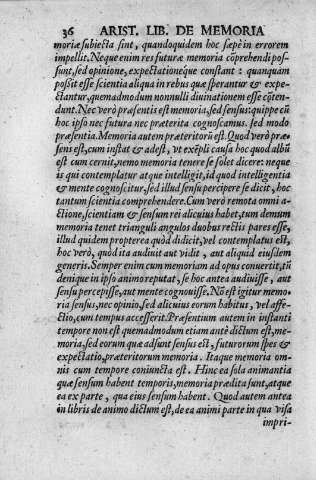 36 ARIST. LIB. DE MEMORIA
moriæ subiecta sint, quandoquidem hoc sæpè in errorem
impellit. Neque enim res futuræ memoria cōprehendi pos-
sunt, sed opinione, expectationeque constant: quanquam
possit esse scientia aliqua in rebus quæ sperantur & expe-
ctantur, quemadmodum nonnulli diuinationem esse cōten-
dunt. Nec verò præsentis est memoria, sed sensus: quippe cū
hoc ipso nec futura nec præterita cognoscamus, sed modo
præsentia. Memoria autem præteritorū est. Quod verò præ-
sens est, cum instat & adest, vt exēpli causa hoc quod albū
est cum cernit, nemo memoria tenere se solet dicere: neque
is qui contemplatur atque intelligit, id quod intelligentia
& mente cognoscitur, sed illud sensu percipere se dicit, hoc
tantum scientia comprehendere. Cum verò remota omni a-
ctione, scientiam & sensum rei alicuius habet, tum demum
memoria tenet trianguli angulos duobus rectis pares esse,
illud quidem propterea quòd didicit, vel contemplatus est,
hoc verò, quòd ita audiuit aut vidit, aut aliquid eiusdem
generis. Semper enim cum memoriam ad opus conuertit, tū
denique in ipso animo reputat, se hoc antea audiuisse, aut
sensu percepisse, aut mente cognouisse. Nō est igitur memo-
ria sensus, nec opinio, sed alicuius eorum habitus, vel affe-
ctio, cum tempus accesserit. Præsentium autem in instanti
tempore non est quemadmodum etiam antè dictum est, me-
moria, sed eorum quæ adsunt sensus est, futurorum spes &
expectatio, præteritorum memoria. Itaque memoria om-
nis cum tempore coniuncta est. Hinc ea sola animantia
quæ sensum habent temporis, memoria prædita sunt, atque
ea ex parte, qua eius sensum habent. Quod autem antea
in libris de animo dictum est, de ea animi parte in qua visa
impri-